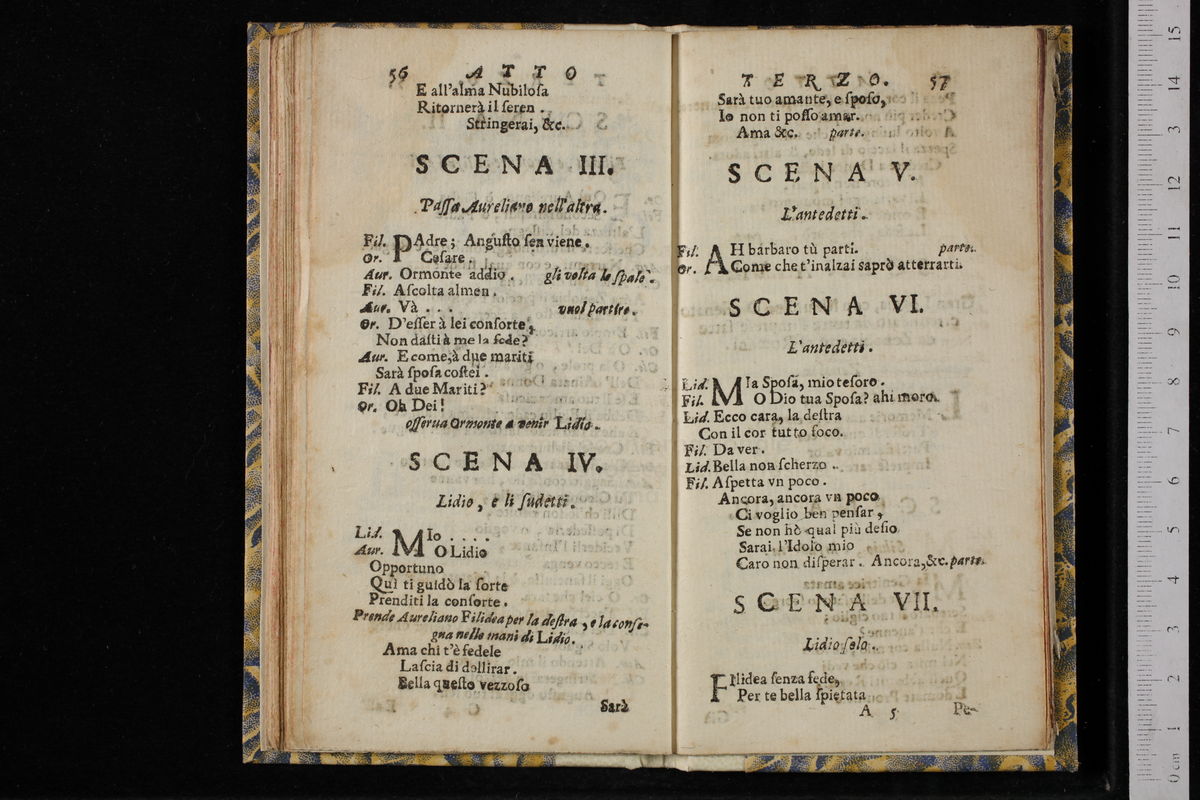 56 ATTO
E all'alma Nubilosa
Ritornerà il seren.
Stringerai, &c.
SCENA III.
Passa Aureliano nell'altra.
Fil. PAdre; Angusto sen viene.
Or. Cesare.
Aur. Ormonte addio. gli volta le spale.
Fil. Ascolta almen.
Aur. Và . . . vuol partire.
Or. D'esser à lei consorte,
Non dasti à me la fede?
Aur. E come, à due mariti
Sarà sposa costei.
Fil. A due Mariti?
Or. Oh Dei!
osserua Ormonte a venir Lidio.
SCENA IV.
Lidio, e li sudetti.
Lid. MIo . . . .
Aur. O Lidio
Opportuno
Quì ti guidò la sorte
Prenditi la consorte.
Prende Aureliano Filidea per la destra, e la conse-
gna nelle mani di Lidio.
Ama chi t'è fedele
Lascia di dellirar.
Bella questo vezzoso
Sarà
TERZO. 57
Sarà tuo amante, e sposo,
Io non ti posso amar.
Ama &c. parte.
SCENA V.
L'antedetti.
Fil. AH barbaro tù parti. parte.
Or. Come che t'inalzai saprò atterrarti.
SCENA VI.
L'antedetti.
Lid. MIa Sposa, mio tesoro.
Fil. O Dio tua Sposa? ahi moro.
Lid. Ecco cara, la destra
Con il cor tutto foco.
Fil. Da ver.
Lid. Bella non scherzo.
Fil. Aspetta vn poco.
Ancora, ancora vn poco
Ci voglio ben pensar,
Se non hò qual più desio
Sarai l'Idolo mio
Caro non disperar. Ancora, &c. parte.
SCENA VII.
Lidio solo.
FIlidea senza fede,
Per te bella spietata
A 5 Pe-